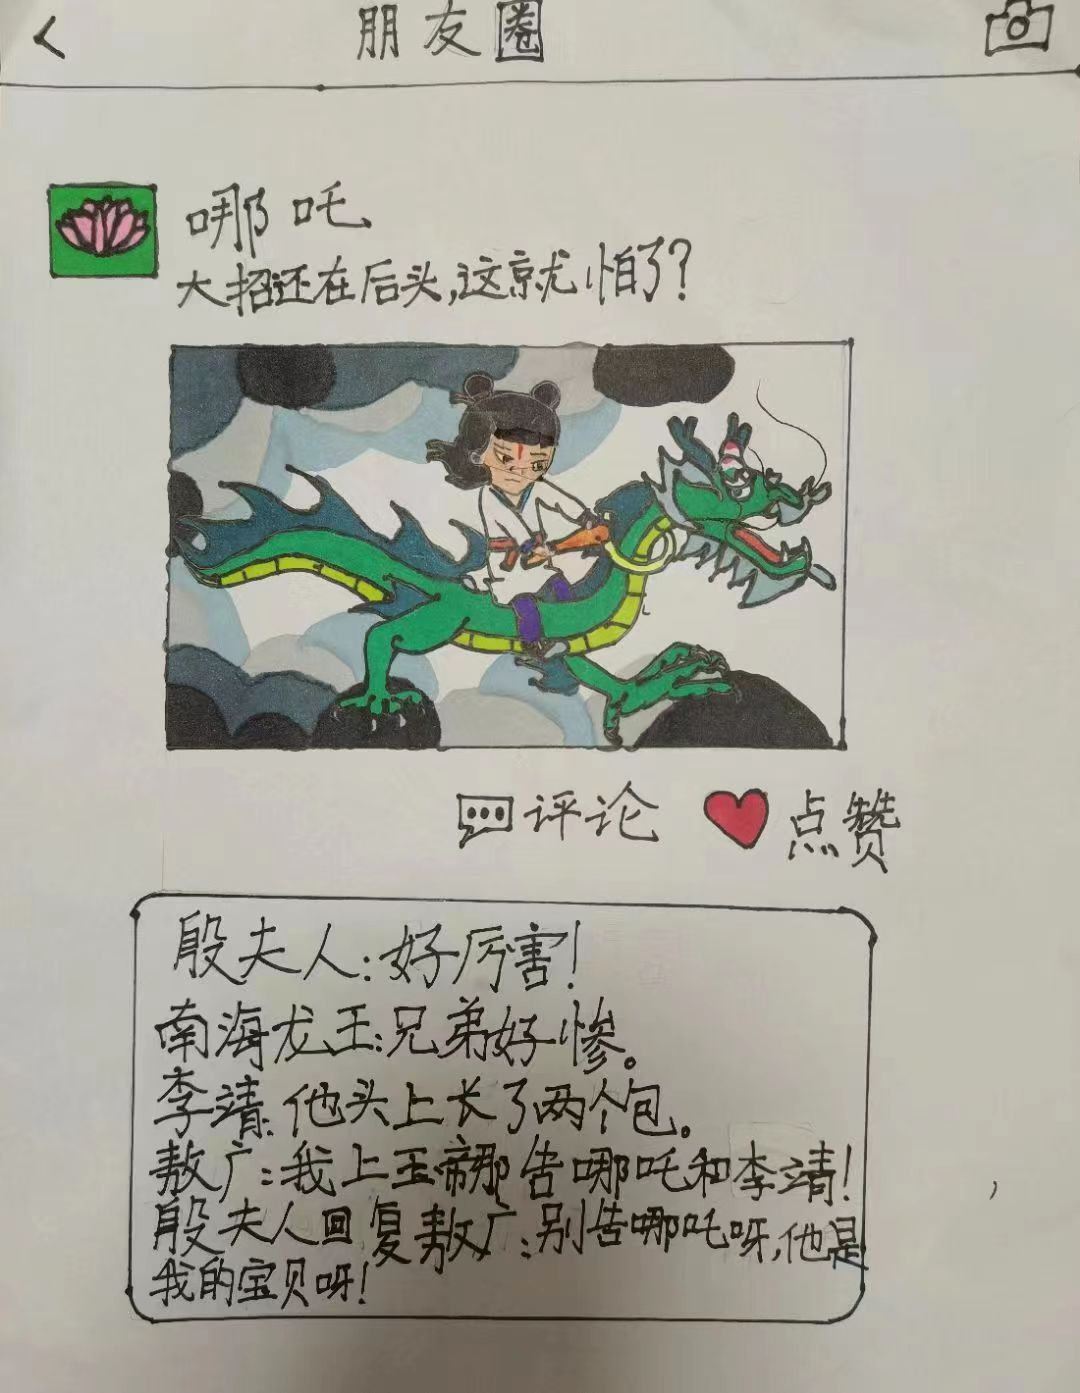 朋友圈
哪吒
大招还在后头,这就怕了?
评论 点赞
殷夫人:好厉害!
南海龙王:兄弟好惨。
李靖:他头上长了两个包。
敖广:我上玉帝那告哪吒和李靖!
殷夫人回复敖广:别告哪吒呀,他是
我的宝贝呀!